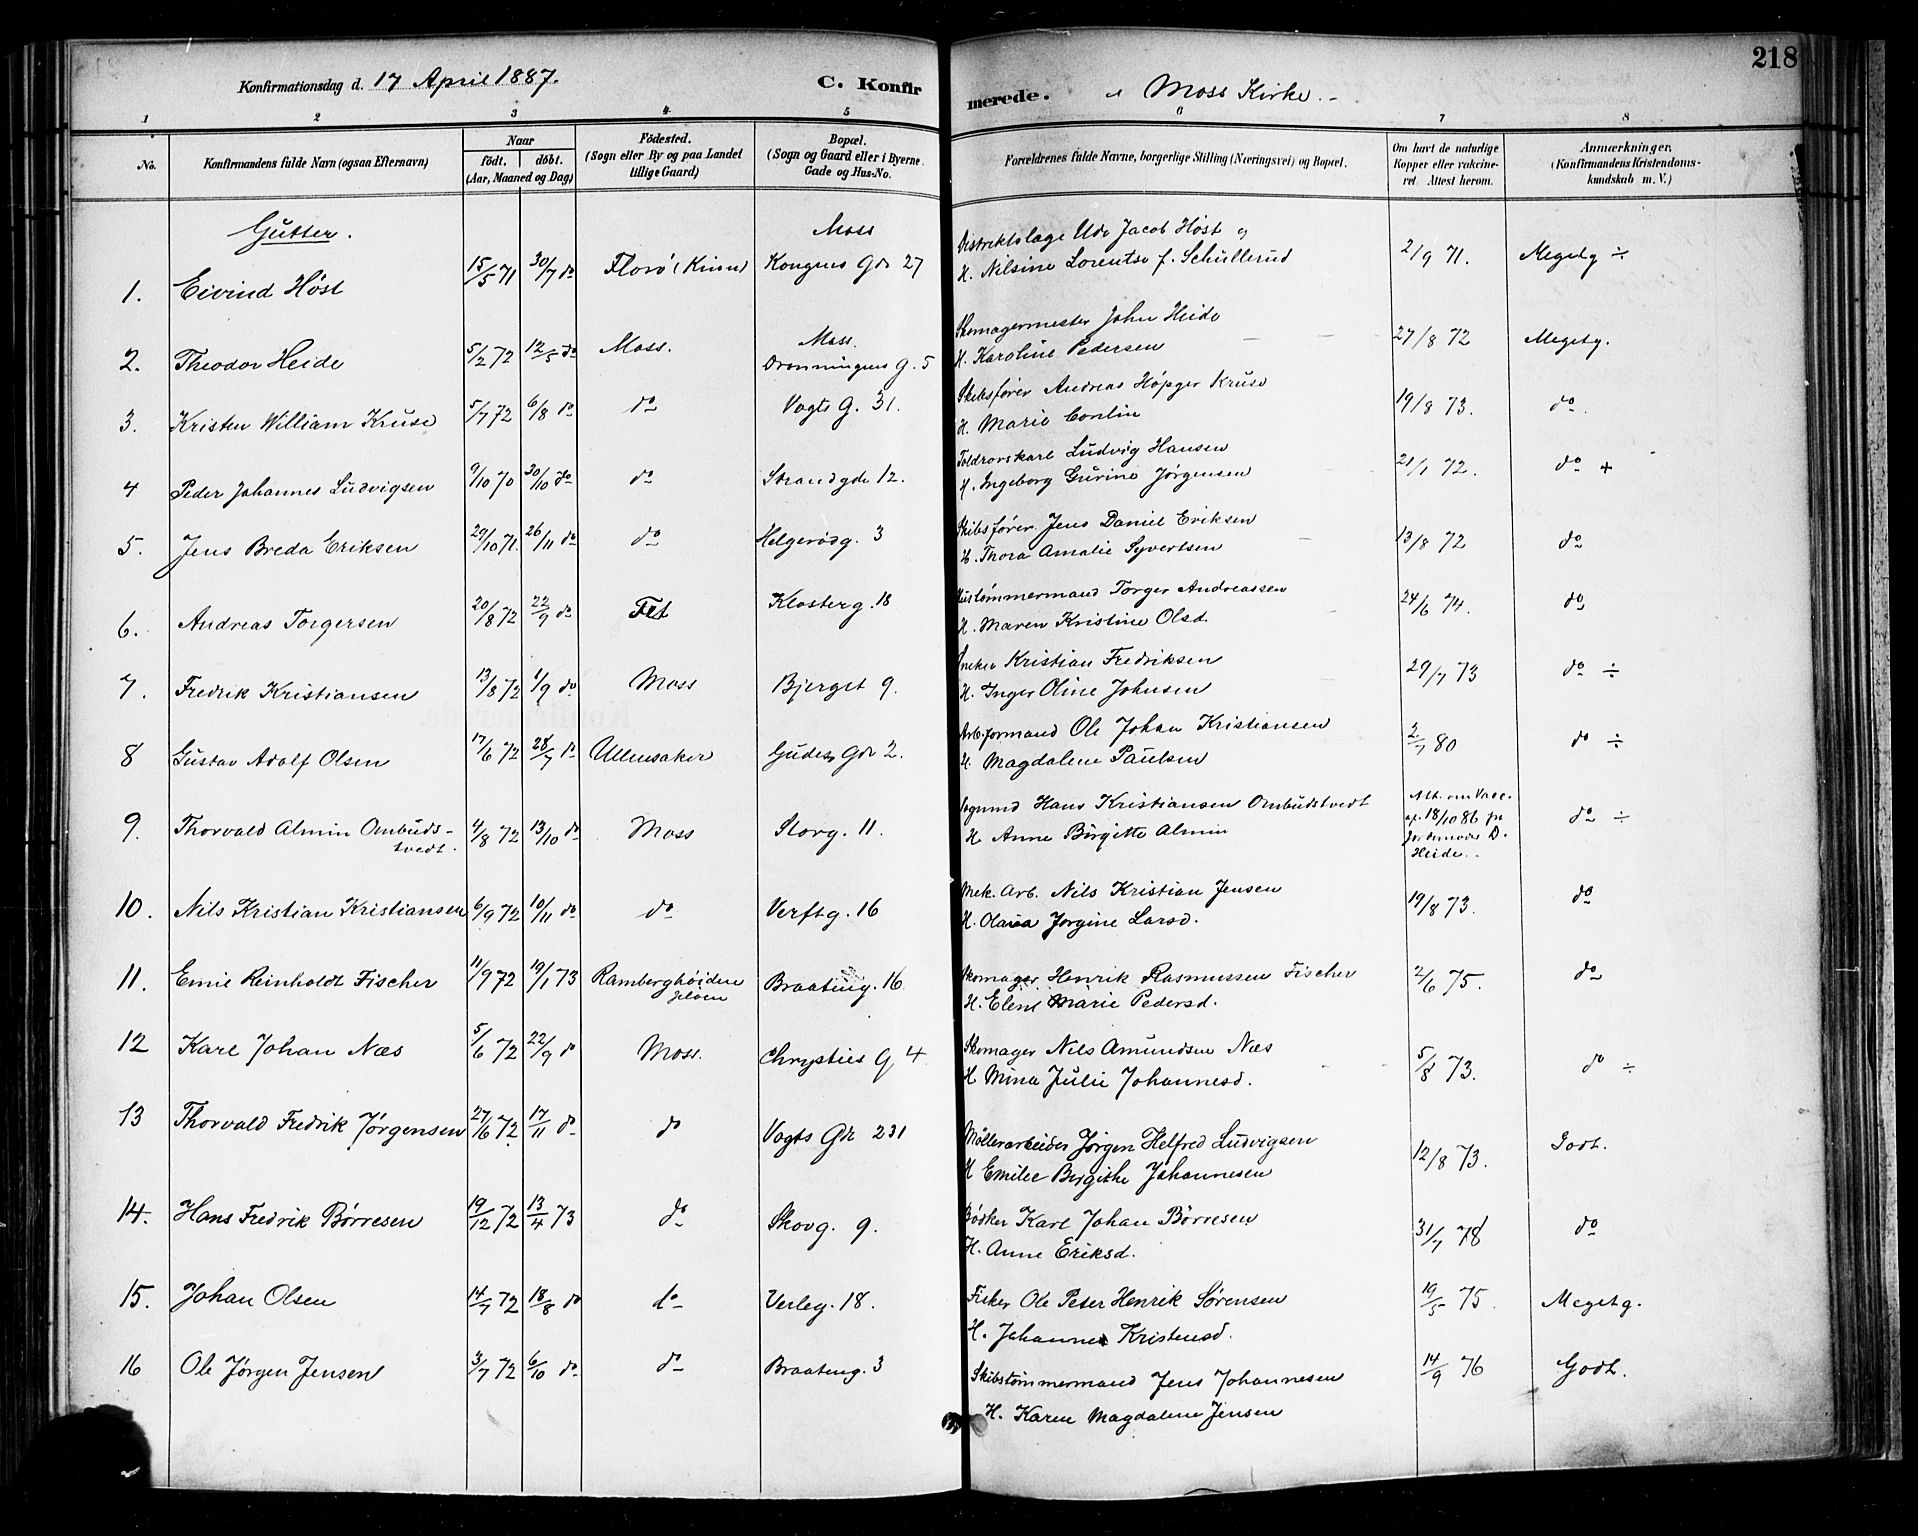 218
Konfirmationsdag d. 17 April 1887.
C. Konfirmerede. i Moss Kirke.
1 2 3 4 5 6 7 8
No.
Konfirmandens fulde Navn (ogsaa Efternavn)
Naar
født. døbt.
(Aar, Maaned og Dag)
Fødested.
(Sogn eller By og paa Landet
tillige Gaard)
Bopæl.
(Sogn og Gaard eller i Byerne
Gade og Hus-No.
Forældrenes fulde Navne, borgerlige Stilling (Næringsvei) og Bopæl.
Om havt de naturlige
Kopper eller vakcine-
ret. Attest herom.
Anmærkninger,
(Konfirmandens Kristendoms-
kundskab m. V.)
Gutter.
1. Eivind Høst 15/5 71 30/7 do Florø (Kinn) Moss Kongens Gd. 27
Distriktslæge Udo Jacob Høst og
H. Nilsine Lorentse f. Schullerud 21/9 71. Megetg ÷
2. Theodor Heide 5/2 72 12/5 do Moss. Moss. Dronningens G. 5
Skomagermester John Heide
H. Karoline Pedersen 27/8 72 Megetg.
3. Kristen William Kruse 5/7 72 6/8 do do Vogts G. 31.
Skibsfører Andreas Høpger Kruse
H. Marie Conlin 19/8 73. do.
4 Peder Johannes Ludvigsen 9/10 70 30/10 do do Strandgde 12.
Toldrorskarl Ludvig Hansen
H. Ingeborg Gurine Jørgensen 21/1 72. do +
5. Jens Breda Eriksen 29/10 71. 26/11 do do Helgerødg. 3
Skibsfører Jens Daniel Eriksen
H. Thora Amalie Syvertsen 13/8 72 do
6. Andreas Torgersen 20/8 72 22/9 do Fet Klosterg. 18
Hustømmermand Torger Andreassen
H. Maren Kristine Olsd. 24/6 74. do
7. Fredrik Kristiansen 13/8 72 1/9 do Moss Bjerget 9.
Sneker Kristian Fredriksen
H. Inger Oline Johnsen 29/7 73 do ÷
8 Gustav Adolf Olsen 17/6 72 28/7 do Ullensaker Gudes Gd 2.
Arb.formand Ole Johan Kristiansen
H. Magdalene Paulsen 2/7 80 do ÷
9. Thorvald Almin Ombuds-
tvedt. 4/8 72 13/10 do Moss Storg. 11.
Hans Kristiansen Ombudstvedt
H Anne Birgitte Almin
Att. om Vacc.
ap. 18/10 86 fra
Jordemoder D.
Heide. do ÷
10. Nils Kristian Kristiansen 6/9 72 10/11 do do Verftg. 16
Mek. Arb. Nils Kristian Jensen
H. Olava Jørgine Larsd. 19/8 73. do
11. Emil Reinholdt Fischer 11/9 72 19/1 73 Ramberghøiden
Jeløen Braateng. 16
Skomager Henrik Rasmussen Fischer
H. Eline Marie Pedersd. 2/6 75. do
12 Karl Johan Næs 5/6 72 22/9 do Moss. Chrysties G 4
Skomager Nils Amundsen Næs
H Mina Julie Johannesd. 5/8 73. do ÷
13 Thorvald Fredrik Jørgensen 27/10 72 17/11 do do Vogts Gd 231
Møllerarbeider Jørgen Helfred Ludvigsen
H Emilie Birgithe Johannesen 12/8 73. Godt.
14. Hans Fredrik Børresen 19/12 72 13/4 73 do Skovg. 9.
Bødker Karl Johan Børresen
H. Anne Eriksd. 31/7 78 do
15. Johan Olsen 14/7 72 18/8 do do Verleg. 18.
Fisker Ole Peter Henrik Sørensen
H. Johanne Kristensd. 19/5 75. Megetg.
16 Ole Jørgen Jensen 3/7 72 6/10 do do Braateng. 3
Skibstømmermand Jens Johannesen
H. Karen Magdalene Jensen 14/9 76 Godt.